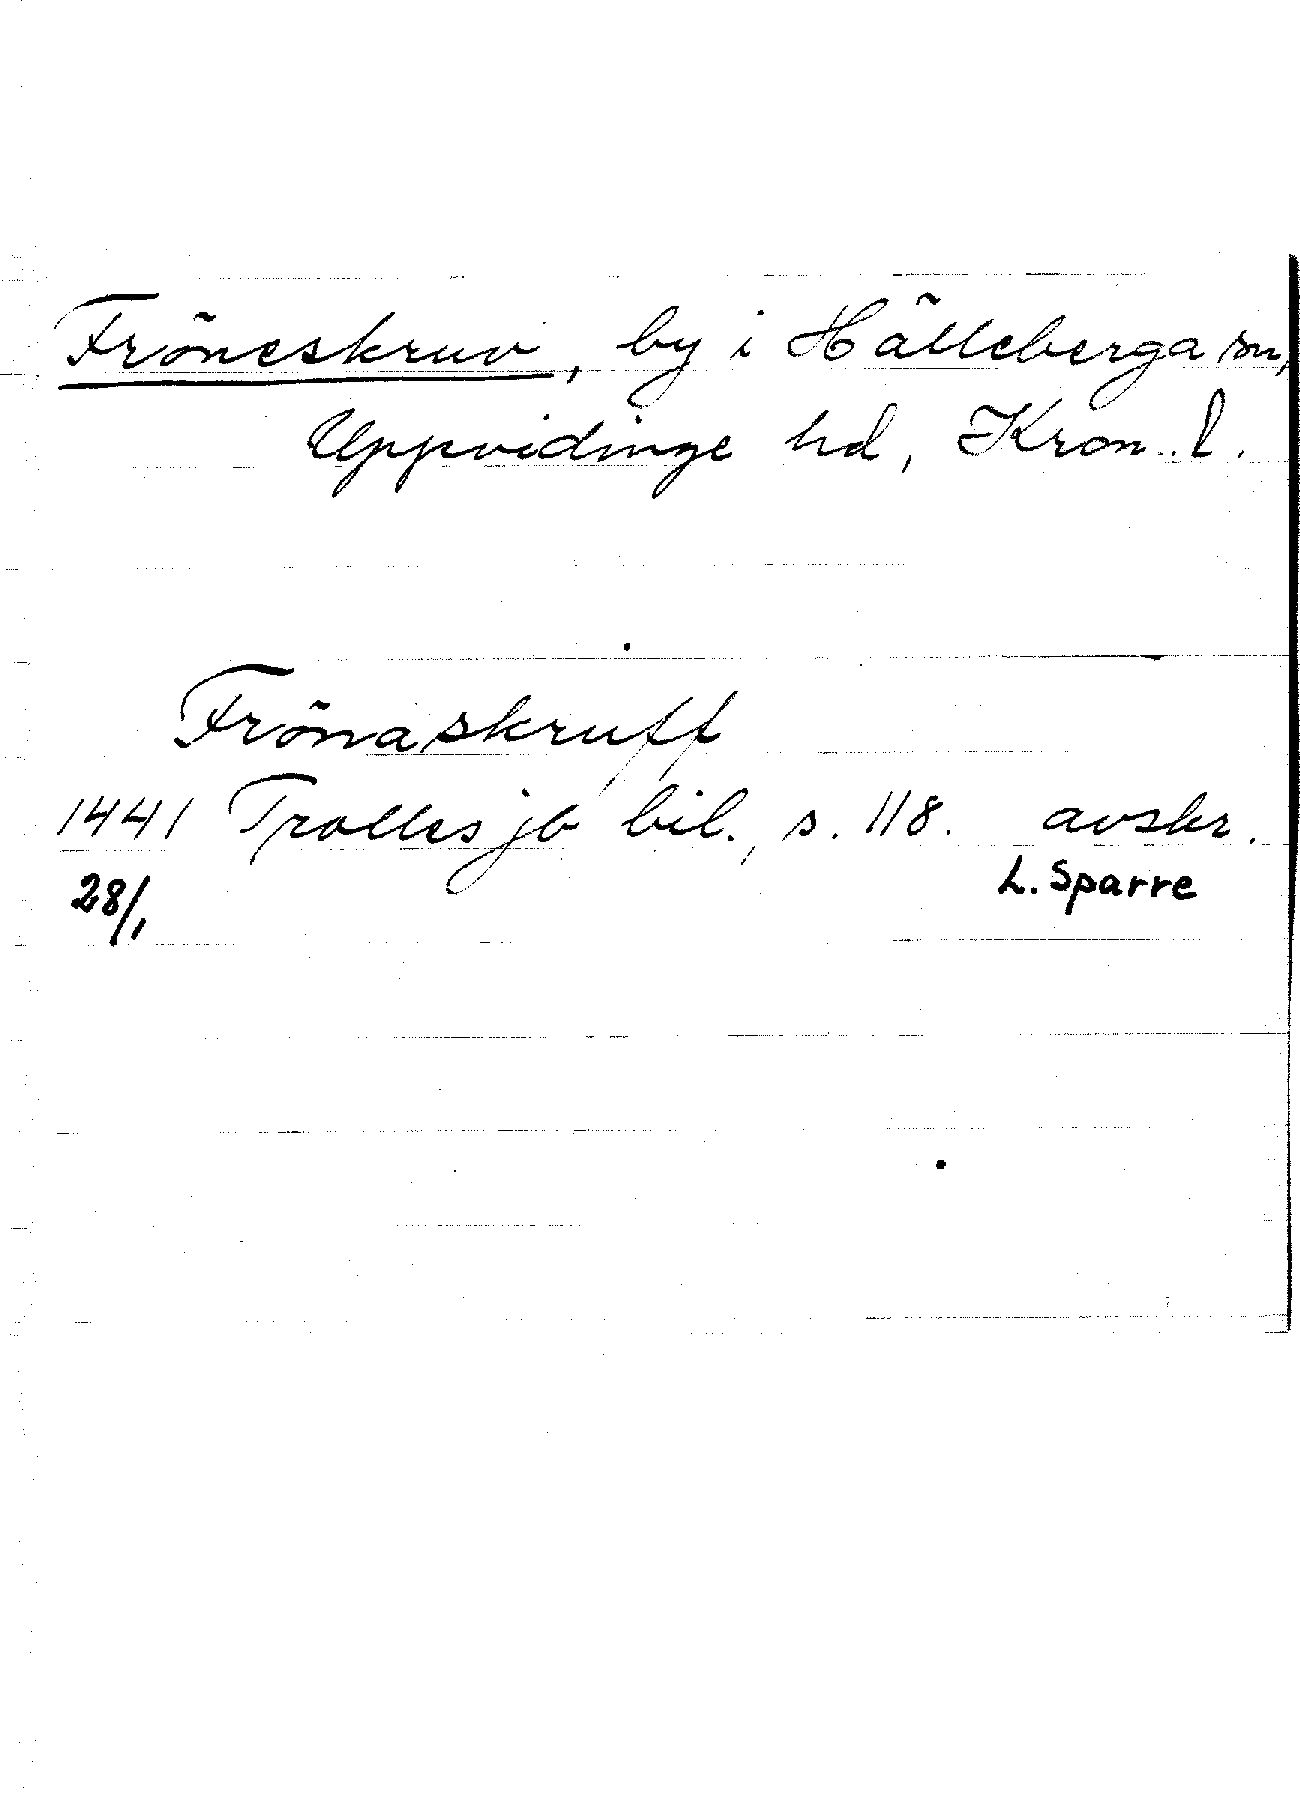 Fröneskruv, by i Hälleberga sn,
Uppvidinge hd, Kron. l.
Frönaskruff
1441 Trolles jb bil., s. 118. avskr.
28/1 L. Sparre